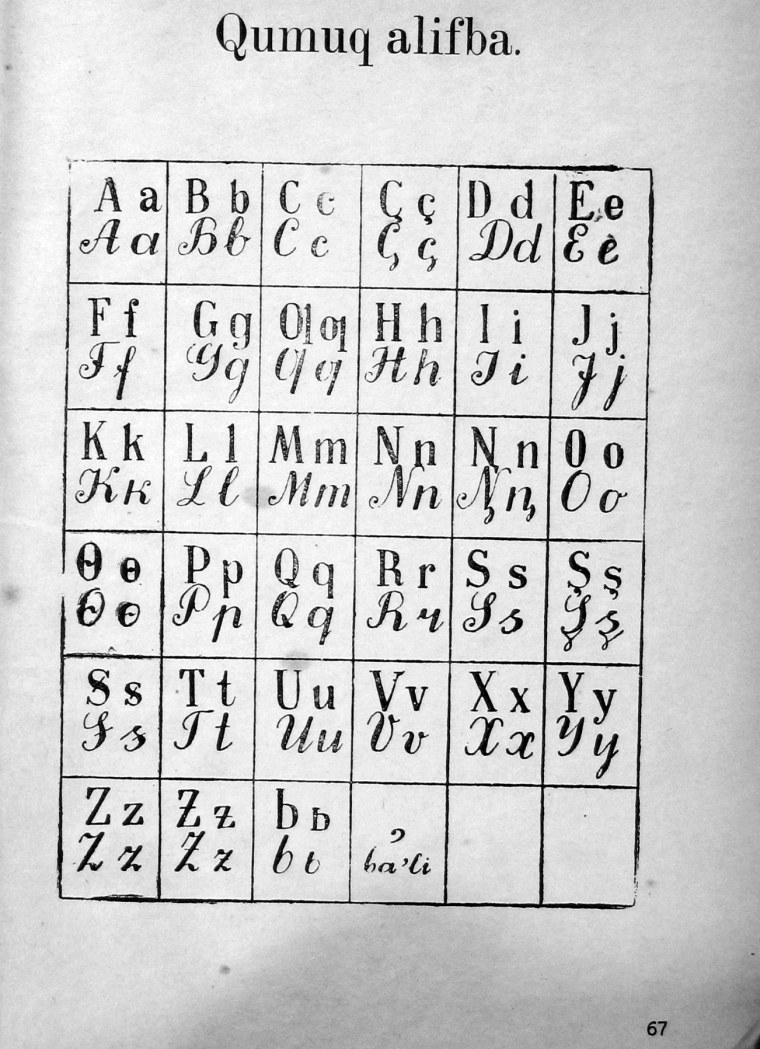 Qumuq alifba.
A a B b C c Ç ç D d E e
A a B b C c Ç ç D d E e
F f G g Ƣ ƣ H h I i J j
F f G g Ƣ ƣ H h I i J j
K k L l M m N n Ꞑ ꞑ O o
K k L l M m N n Ꞑ ꞑ O o
Ɵ ɵ P p Q q R r S s Ş ş
Ɵ ɵ P p Q q R r S s Ş ş
S s T t U u V v X x Y y
S s T t U u V v X x Y y
Z z Ƶ ƶ Ь ь ’
Z z Ƶ ƶ Ь ь ba’li
67